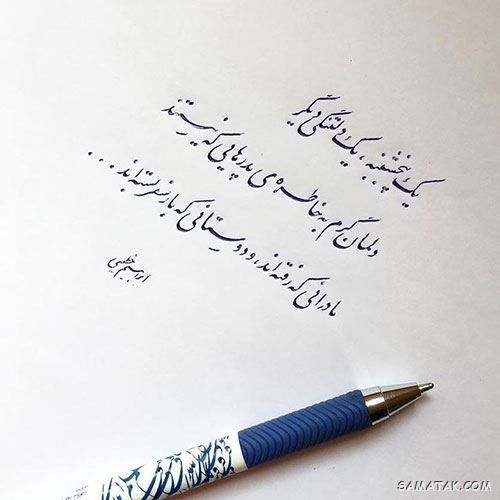 یک پنجشنبه، یک دلتنگی دیگر
دلمان گرم به خاطره ی پدرهایی که نیستند
مادرانی که رفته اند، و دوستانی که بار سفر بسته اند...
ابراهیم خطیبی
SAMATAK.COM